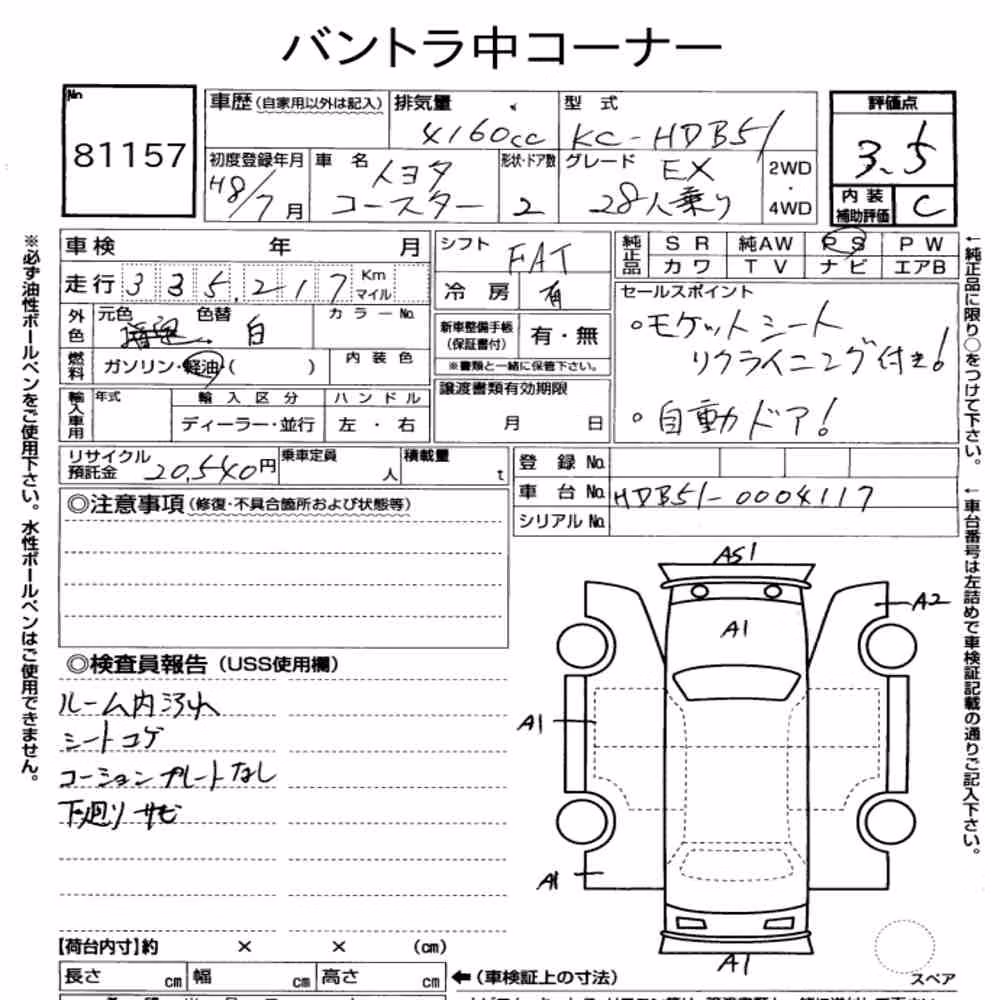 バントラ中コーナー
No
81157
車歴 (自家用以外は記入)
排気量
4160cc
型式
KC-HDB51
評価点
3.5
初度登録年月
H8/7月
車名
トヨタ
コースター
形状・ドア数
2
グレード
EX
28人乗り
2WD
・
4WD
内装
補助評価
C
車検 年 月
走行 335,217 Km
マイル
外色
元色 色替
白
カラーNo.
燃料
ガソリン・軽油・( )
内装色
輸入車用
年式
輸入区分
ディーラー・並行
ハンドル
左・右
シフト
FAT
冷房
有
新車整備手帳
(保証書付)
有・無
※書類と一緒に保管下さい。
譲渡書類有効期限
月 日
純正品
SR 純AW PS PW
カワ TV ナビ エアB
セールスポイント
○モケットシート
リクライニング付き!
○自動ドア!
←純正品に限り○をつけて下さい。
リサイクル
預託金
20,540円
乗車定員
人
積載量
t
登録No.
車台No.
HDB51-0004117
シリアルNo.
←車台番号は左詰めで車検証記載の通りご記入下さい。
※必ず油性ボールペンをご使用下さい。水性ボールペンはご使用できません。
◎注意事項(修復・不具合箇所および状態等)
◎検査員報告(USS使用欄)
ルーム内汚れ
シートコゲ
コーションプレートなし
下廻りサビ
AS1
A1
A2
A1
A1
A1
スペア
【荷台内寸】約 × × (cm)
長さ cm 幅 cm 高さ cm ←(車検証上の寸法)